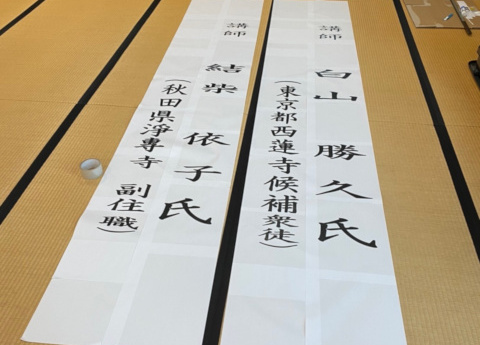 講師
白山 勝久氏
(東京都西蓮寺候補衆徒)
講師
結柴 依子氏
(秋田県淨專寺 副住職)